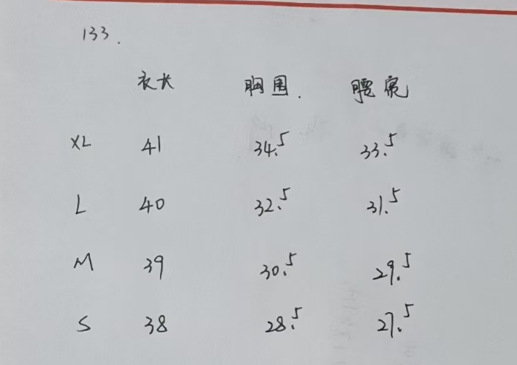 133.
衣长 胸围. 腰宽
XL 41 34.5 33.5
L 40 32.5 31.5
M 39 30.5 29.5
S 38 28.5 27.5